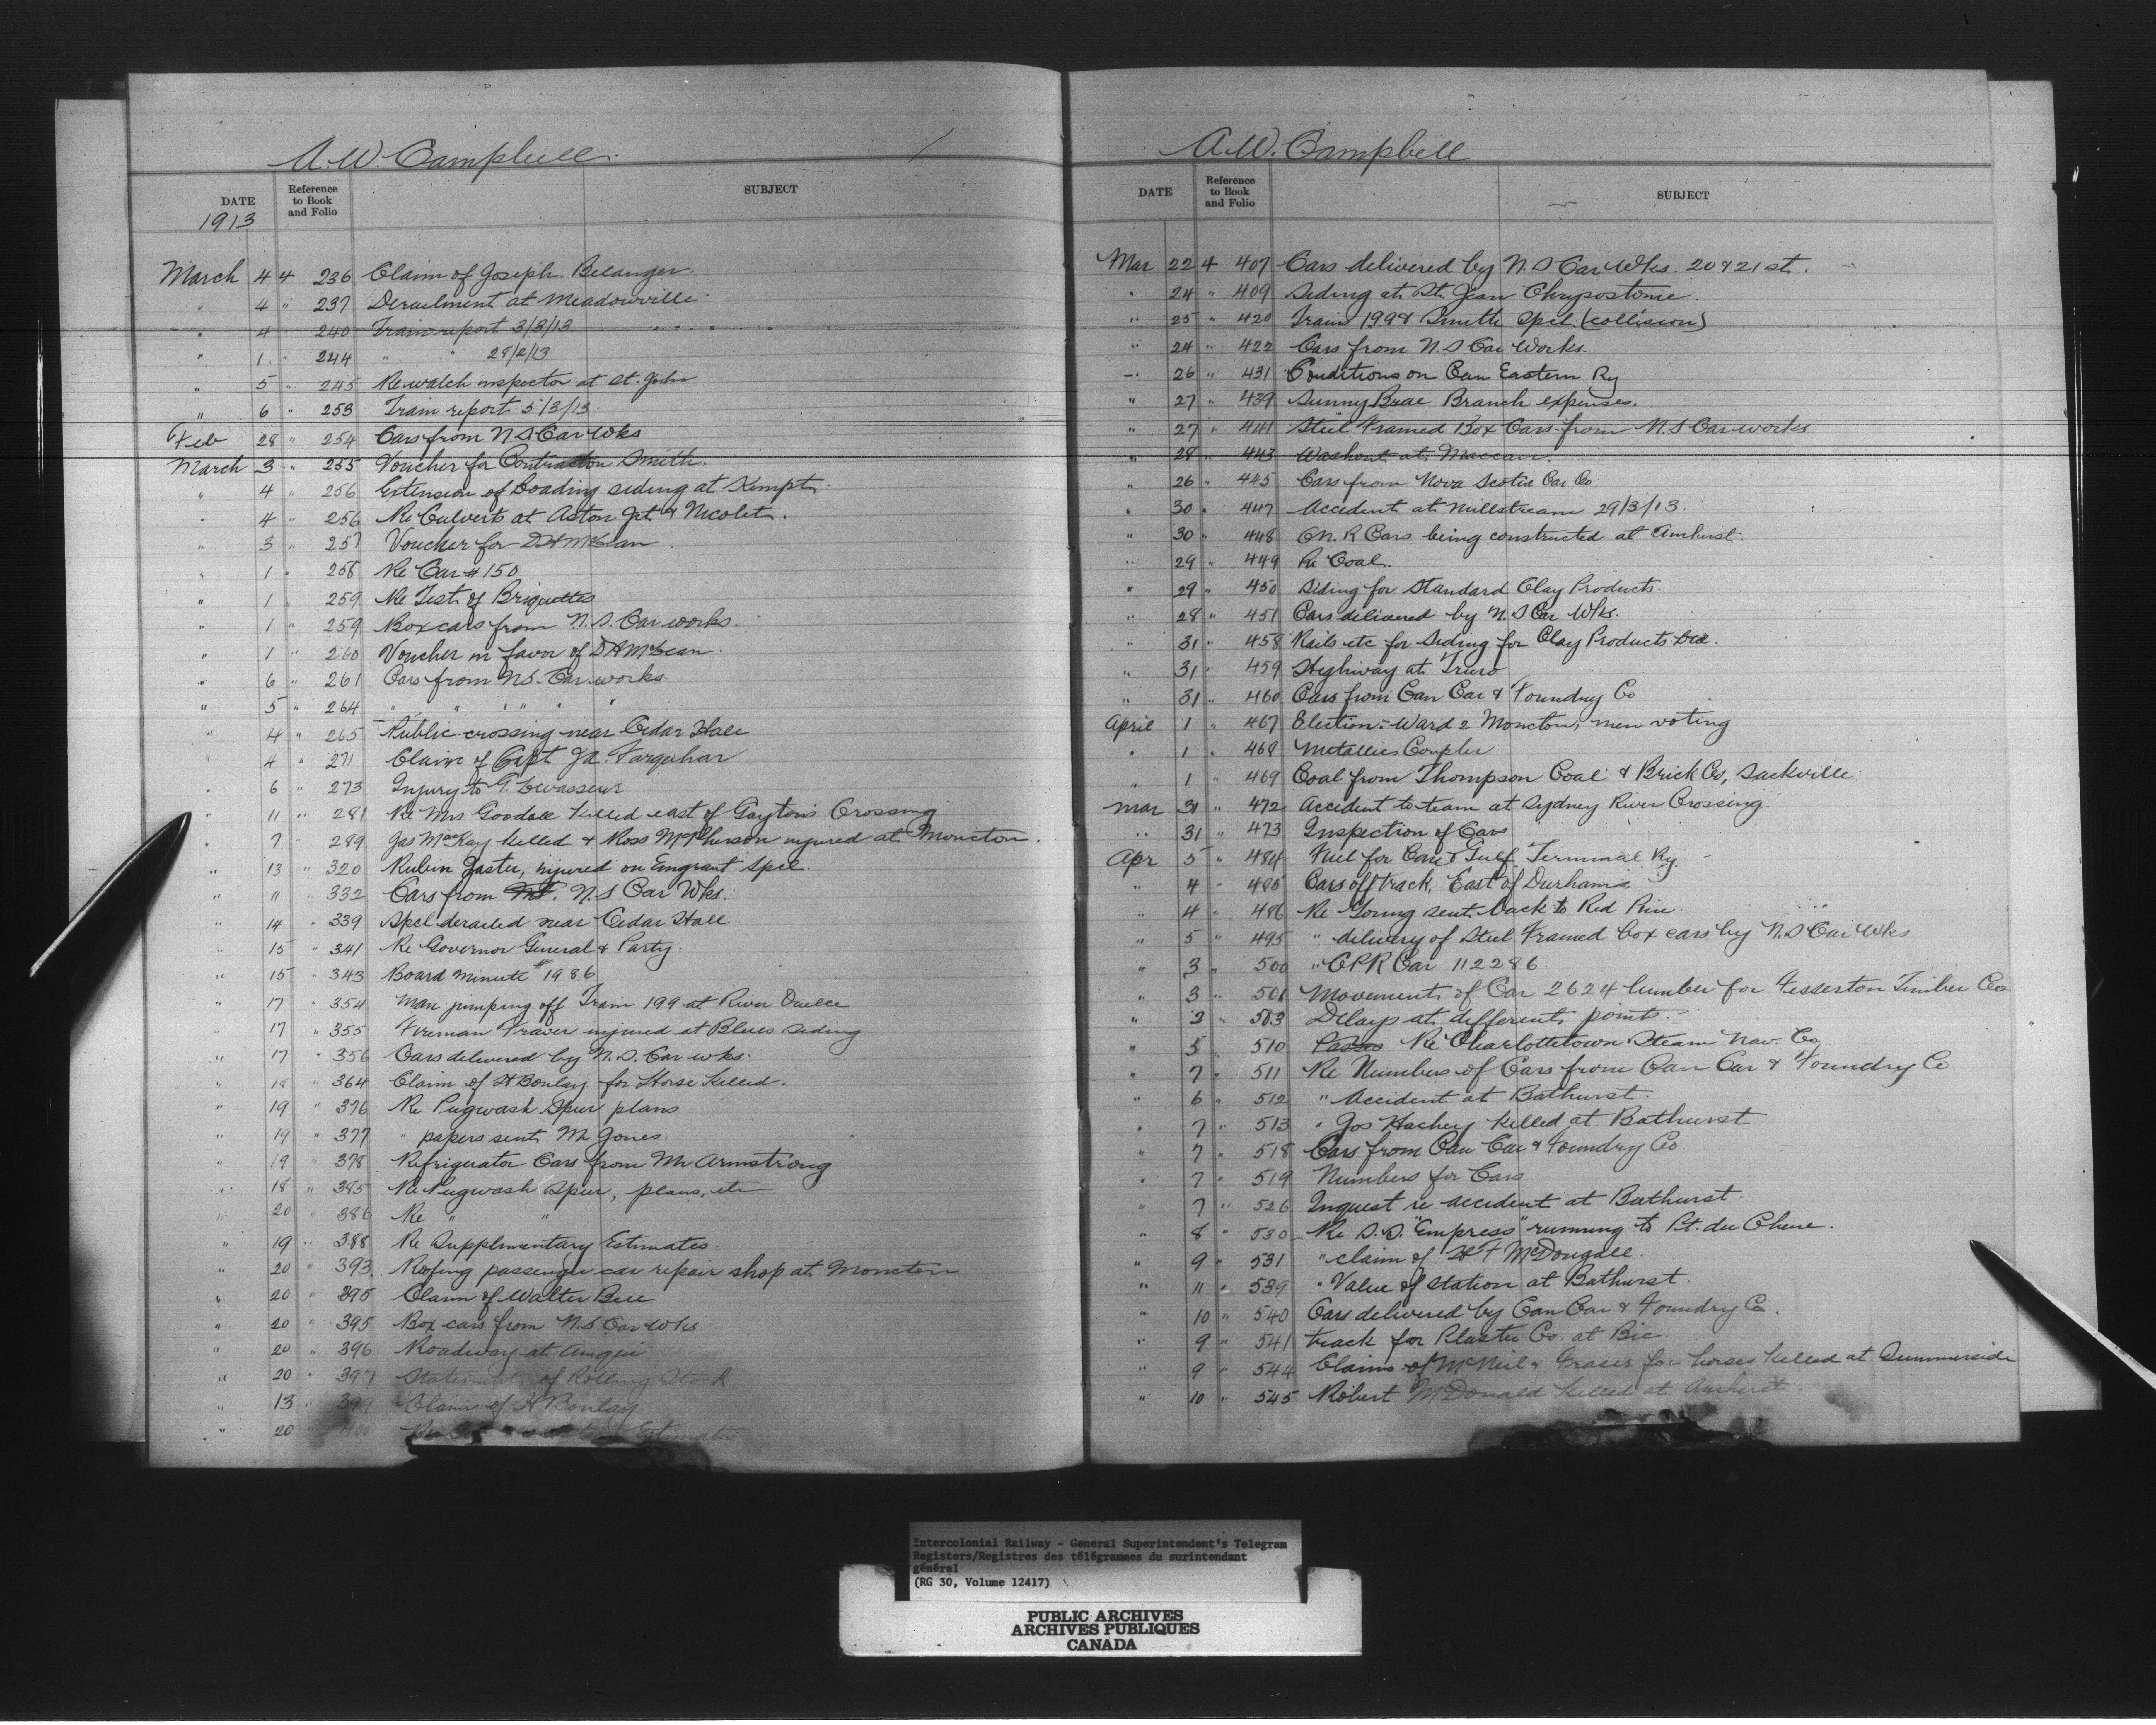 A. W. Campbell.
DATE Reference to Book and Folio SUBJECT
1913
March 4 4 236 Claim of Joseph Belanger.
" 4 " 237 Derailment at Meadowville
" 4 " 240 Train report 3/3/13
" 1 " 244 " " 28/2/13
" 5 " 245 Re watch inspector at St. John
" 6 " 253 Train report 5/3/13
Feb 28 " 254 Cars from N.S Car Wks
March 3 " 255 Voucher for Contraction Smith.
" 4 " 256 Extension of loading siding at Kempt.
" 4 " 256 Re Culverts at Aston Jct. & Nicolet.
" 3 " 257 Voucher for D A McLean
" 1 " 258 Re Car # 150
" 1 " 259 Re Test of Briquettes
" 1 " 259 Box cars from N.S. Car works.
" 1 " 260 Voucher in favor of D A McLean.
" 6 " 261 Cars from N.S. Car works.
" 5 " 264 " " " " " "
" 4 " 265 Public crossing near Cedar Hall
" 4 " 271 Claim of Capt Ja. Farquhar
" 6 " 273 Injury to T. Levasseur
" 11 " 281 Re Mrs Goodall killed east of Gayton's Crossing
" 7 " 289 Jas MacKay killed & Ross McPherson injured at Moncton.
" 13 " 320 Rubin Jaster, injured on Emgrant Spcl.
" 11 " 332 Cars from N.S Car Wks.
" 14 " 339 Spcl derailed near Cedar Hall
" 15 " 341 Re Governor General & Party.
" 15 " 343 Board Minute # 1986
" 17 " 354 Man jumping off Train 199 at River Ouelle
" 17 " 355 Fireman Fraser injured at Blues Siding.
" 17 " 356 Cars delivered by N.S. Car wks.
" 18 " 364 Claim of H Boulay for Horse killed.
" 19 " 376 Re Pugwash Spur plans
" 19 " 377 " papers sent Mr Jones.
" 19 " 378 Refrigerator Cars from Mr Armstrong
" 18 " 385 Re Pugwash Spur, plans, etc
" 20 " 386 Re " "
" 19 " 388 Re Supplimentary Estimates.
" 20 " 393 Roofing passenger car repair shop at Moncton
" 20 " 395 Claim of Walter Bell
" 20 " 395 Box cars from N.S Car Wks
" 20 " 396 Roadway at Amqui
" 20 " 397 Statement of Rolling Stock
" 13 " 399 Claim of H Boulay.
" 20 " 400 Estimates
A. W. Campbell
DATE Reference to Book and Folio SUBJECT
Mar 22 4 407 Cars delivered by N.S Car Wks. 20 & 21st.
" 24 " 409 Siding at St. Jean Chrysostome.
" 25 " 420 Train 199 & Smith Spcl (collision)
" 24 " 422 Cars from N.S Car Works.
" 26 " 431 Conditions on Can Eastern Ry
" 27 " 439 Sunny Brae Branch expenses.
" 27 " 441 Steel Framed Box Cars from N.S Car works
" 28 " 443 Washout at Maccan.
" 26 " 445 Cars from Nova Scotia Car Co.
" 30 " 447 Accident at Millstream 29/3/13.
" 30 " 448 C.N.R Cars being constructed at Amherst
" 29 " 449 Re Coal.
" 29 " 450 Siding for Standard Clay Products.
" 28 " 451 Cars delivered by N.S Car Wks.
" 31 " 458 Rails etc for Siding for Clay Products Ltd.
" 31 " 459 Highway at Truro
" 31 " 460 Cars from Can Car & Foundry Co
April 1 " 467 Election:- Ward 2 Moncton, men voting
" 1 " 468 Metallics Coupler
" 1 " 469 Coal from Thompson Coal & Brick Co, Sackville
Mar 31 " 472 Accident to team at Sydney River Crossing.
" 31 " 473 Inspection of Cars
Apr 5 " 484 Fuel for Can & Gulf Terminal Ry.
" 4 " 485 Cars off track, East of Durham
" 4 " 486 Re Going sent back to Red Pine
" 5 " 495 " delivery of Steel Framed box cars by N.S Car Wks
" 3 " 500 " CPR Car 112286
" 3 " 501 Movement of Car 2624 lumber for Fesserton Timber Co.
" 3 " 503 Delays at different points.
" 5 " 510 Passes Re Charlottetown Steam Nav. Co
" 7 " 511 Re Numbers of Cars from Can Car & Foundry Co
" 6 " 512 " Accident at Bathurst.
" 7 " 513 " Jos Hachey killed at Bathurst
" 7 " 518 Cars from Can Car & Foundry Co
" 7 " 519 Numbers for Cars
" 7 " 526 Inquest re accident at Bathurst.
" 8 " 530 Re S.S. "Empress" running to Pt. du Chene.
" 9 " 531 " claim of H F McDougall.
" 11 " 539 " Value of station at Bathurst.
" 10 " 540 Cars delivered by Can Car & Foundry Co.
" 9 " 541 track for Plaster Co. at Bic.
" 9 " 544 Claims of McNeil & Fraser for horses killed at Summerside
" 10 " 545 Robert McDonald killed at Amherst
Intercolonial Railway - General Superintendent's Telegram
Registers/Registres des télégrammes du surintendant
général
(RG 30, Volume 12417)
PUBLIC ARCHIVES
ARCHIVES PUBLIQUES
CANADA